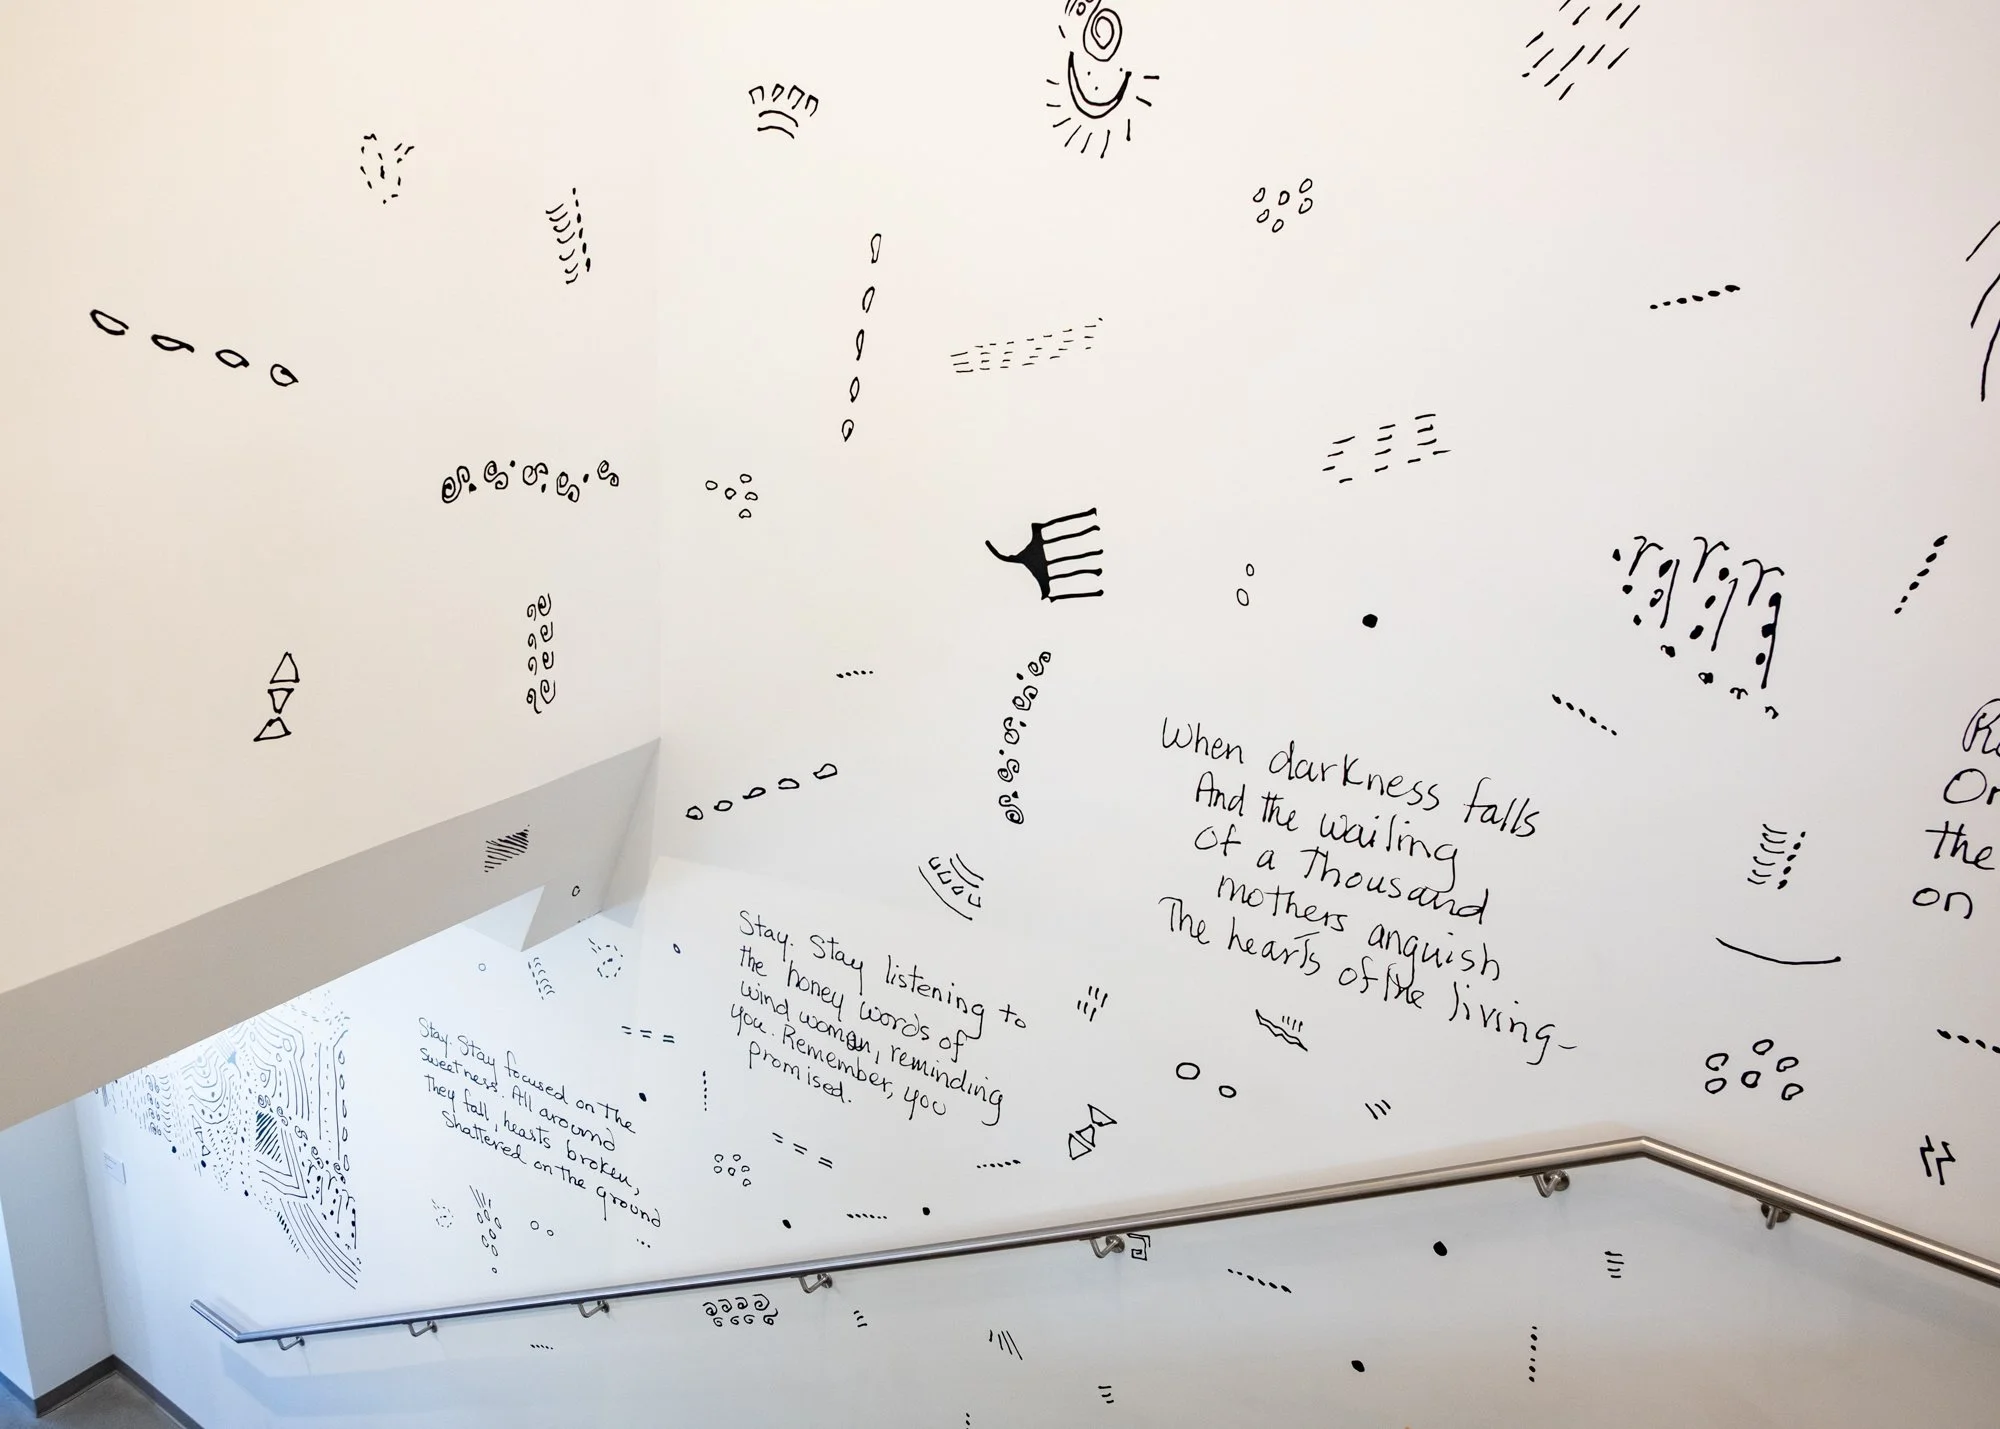 When darkness falls
And the wailing
Of a Thousand
mothers anguish
The hearts of the living_
Stay. Stay listening to
the honey words of
wind woman, reminding
you. Remember, you
promised.
Stay. Stay focused on the
sweetness. All around
they fall, hearts broken,
Shattered on the ground
...
On
the
on